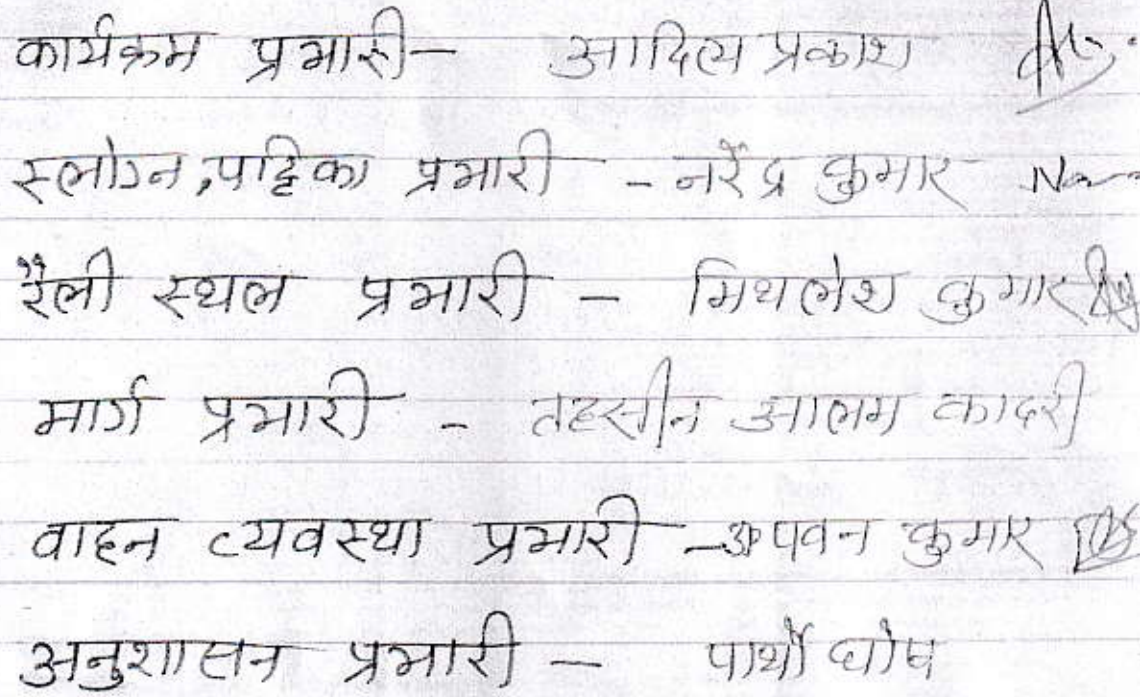 कार्यक्रम प्रभारी - आदित्य प्रकाश
स्लोगन, पट्टिका प्रभारी - नरेंद्र कुमार
रैली स्थल प्रभारी - मिथलेश कुमार
मार्ग प्रभारी - तहसीन आलम कादरी
वाहन व्यवस्था प्रभारी - पवन कुमार
अनुशासन प्रभारी - पार्थो घोष